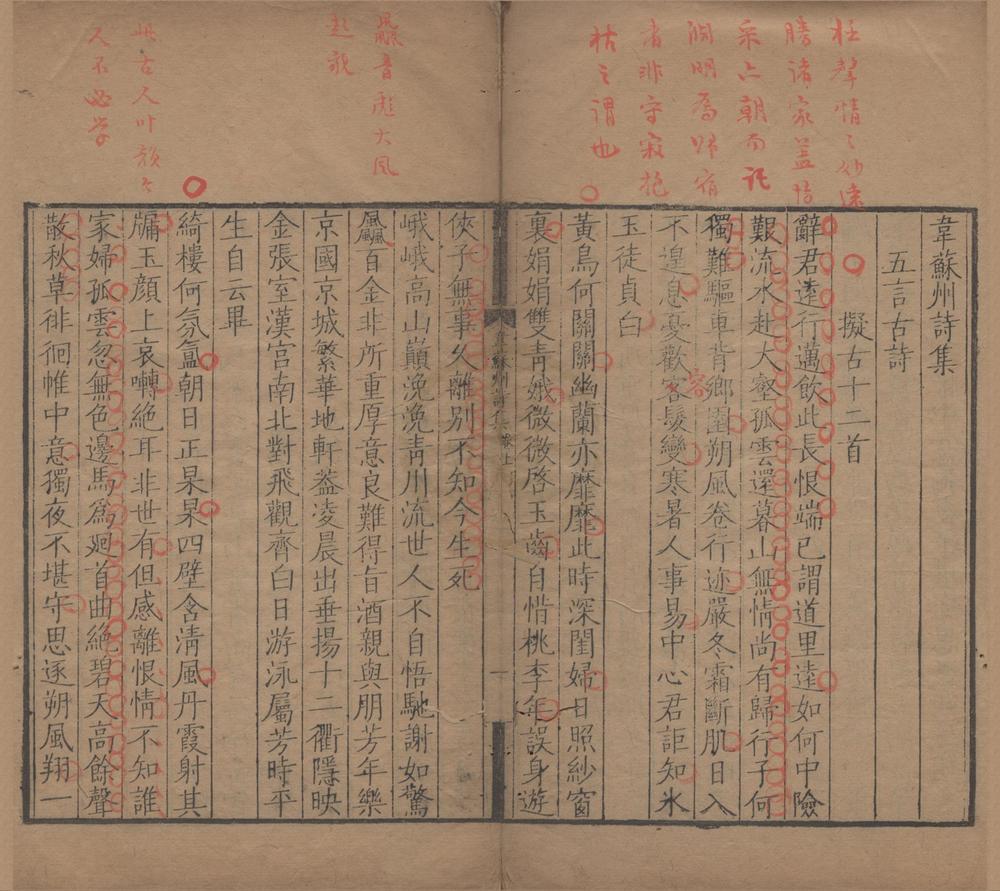 聲情之妙遠
勝諸家蓋情
采六朝而託
淵明為歸宿
者非守寂抱
枯之謂也
韋蘇州詩集
五言古詩
擬古十二首
辭君遠行邁飲此長恨端已謂道里遠如何中險
艱流水赴大壑孤雲還暮山無情尚有歸行子何
獨難驅車背鄉園朔風卷行迹嚴冬霜斷肌日入
容
不遑息憂歡客髮變寒暑人事易中心君詎知氷
玉徒貞白
黃鳥何關關幽蘭亦靡靡此時深閨婦日照紗窗
裏娟娟雙青娥微微啓玉齒自惜桃李年誤身遊
韋蘇州詩集 卷上 一
飍音彪大風
起貌
此古人叶韻今
人不必學
俠子無事久離別不知今生死
峨峨高山巔浼浼青川流世人不自悟馳謝如驚
飍百金非所重厚意良難得旨酒親與朋芳年樂
京國京城繁華地軒蓋凌晨出垂揚十二衢隱映
金張室漢宮南北對飛觀齊白日游泳屬芳時平
生自云畢
綺樓何氛氳朝日正杲杲四壁含清風丹霞射其
牖玉顏上哀囀絕耳非世有但感離恨情不知誰
家婦孤雲忽無色邊馬爲迴首曲絕碧天高餘聲
散秋草徘徊帷中意獨夜不堪守思逐朔風翔一